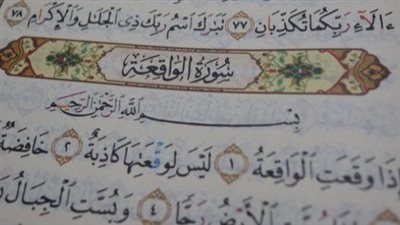 ءَالَآءِ رَبِّكُمَا تُكَذِّبَانِ ٧٧ تَبَٰرَكَ ٱسْمُ رَبِّكَ ذِى ٱلْجَلَٰلِ وَٱلْإِكْرَامِ ٧٨
سُورَةُ الوَاقِعَةِ
بِسْمِ ٱللَّهِ ٱلرَّحْمَٰنِ ٱلرَّحِيمِ
إِذَا وَقَعَتِ ٱلْوَاقِعَةُ ١ لَيْسَ لِوَقْعَتِهَا كَاذِبَةٌ ٢ خَافِضَةٌ
ٱلْأَرْضُ رَجًّا ٤ وَبُسَّتِ ٱلْجِبَالُ